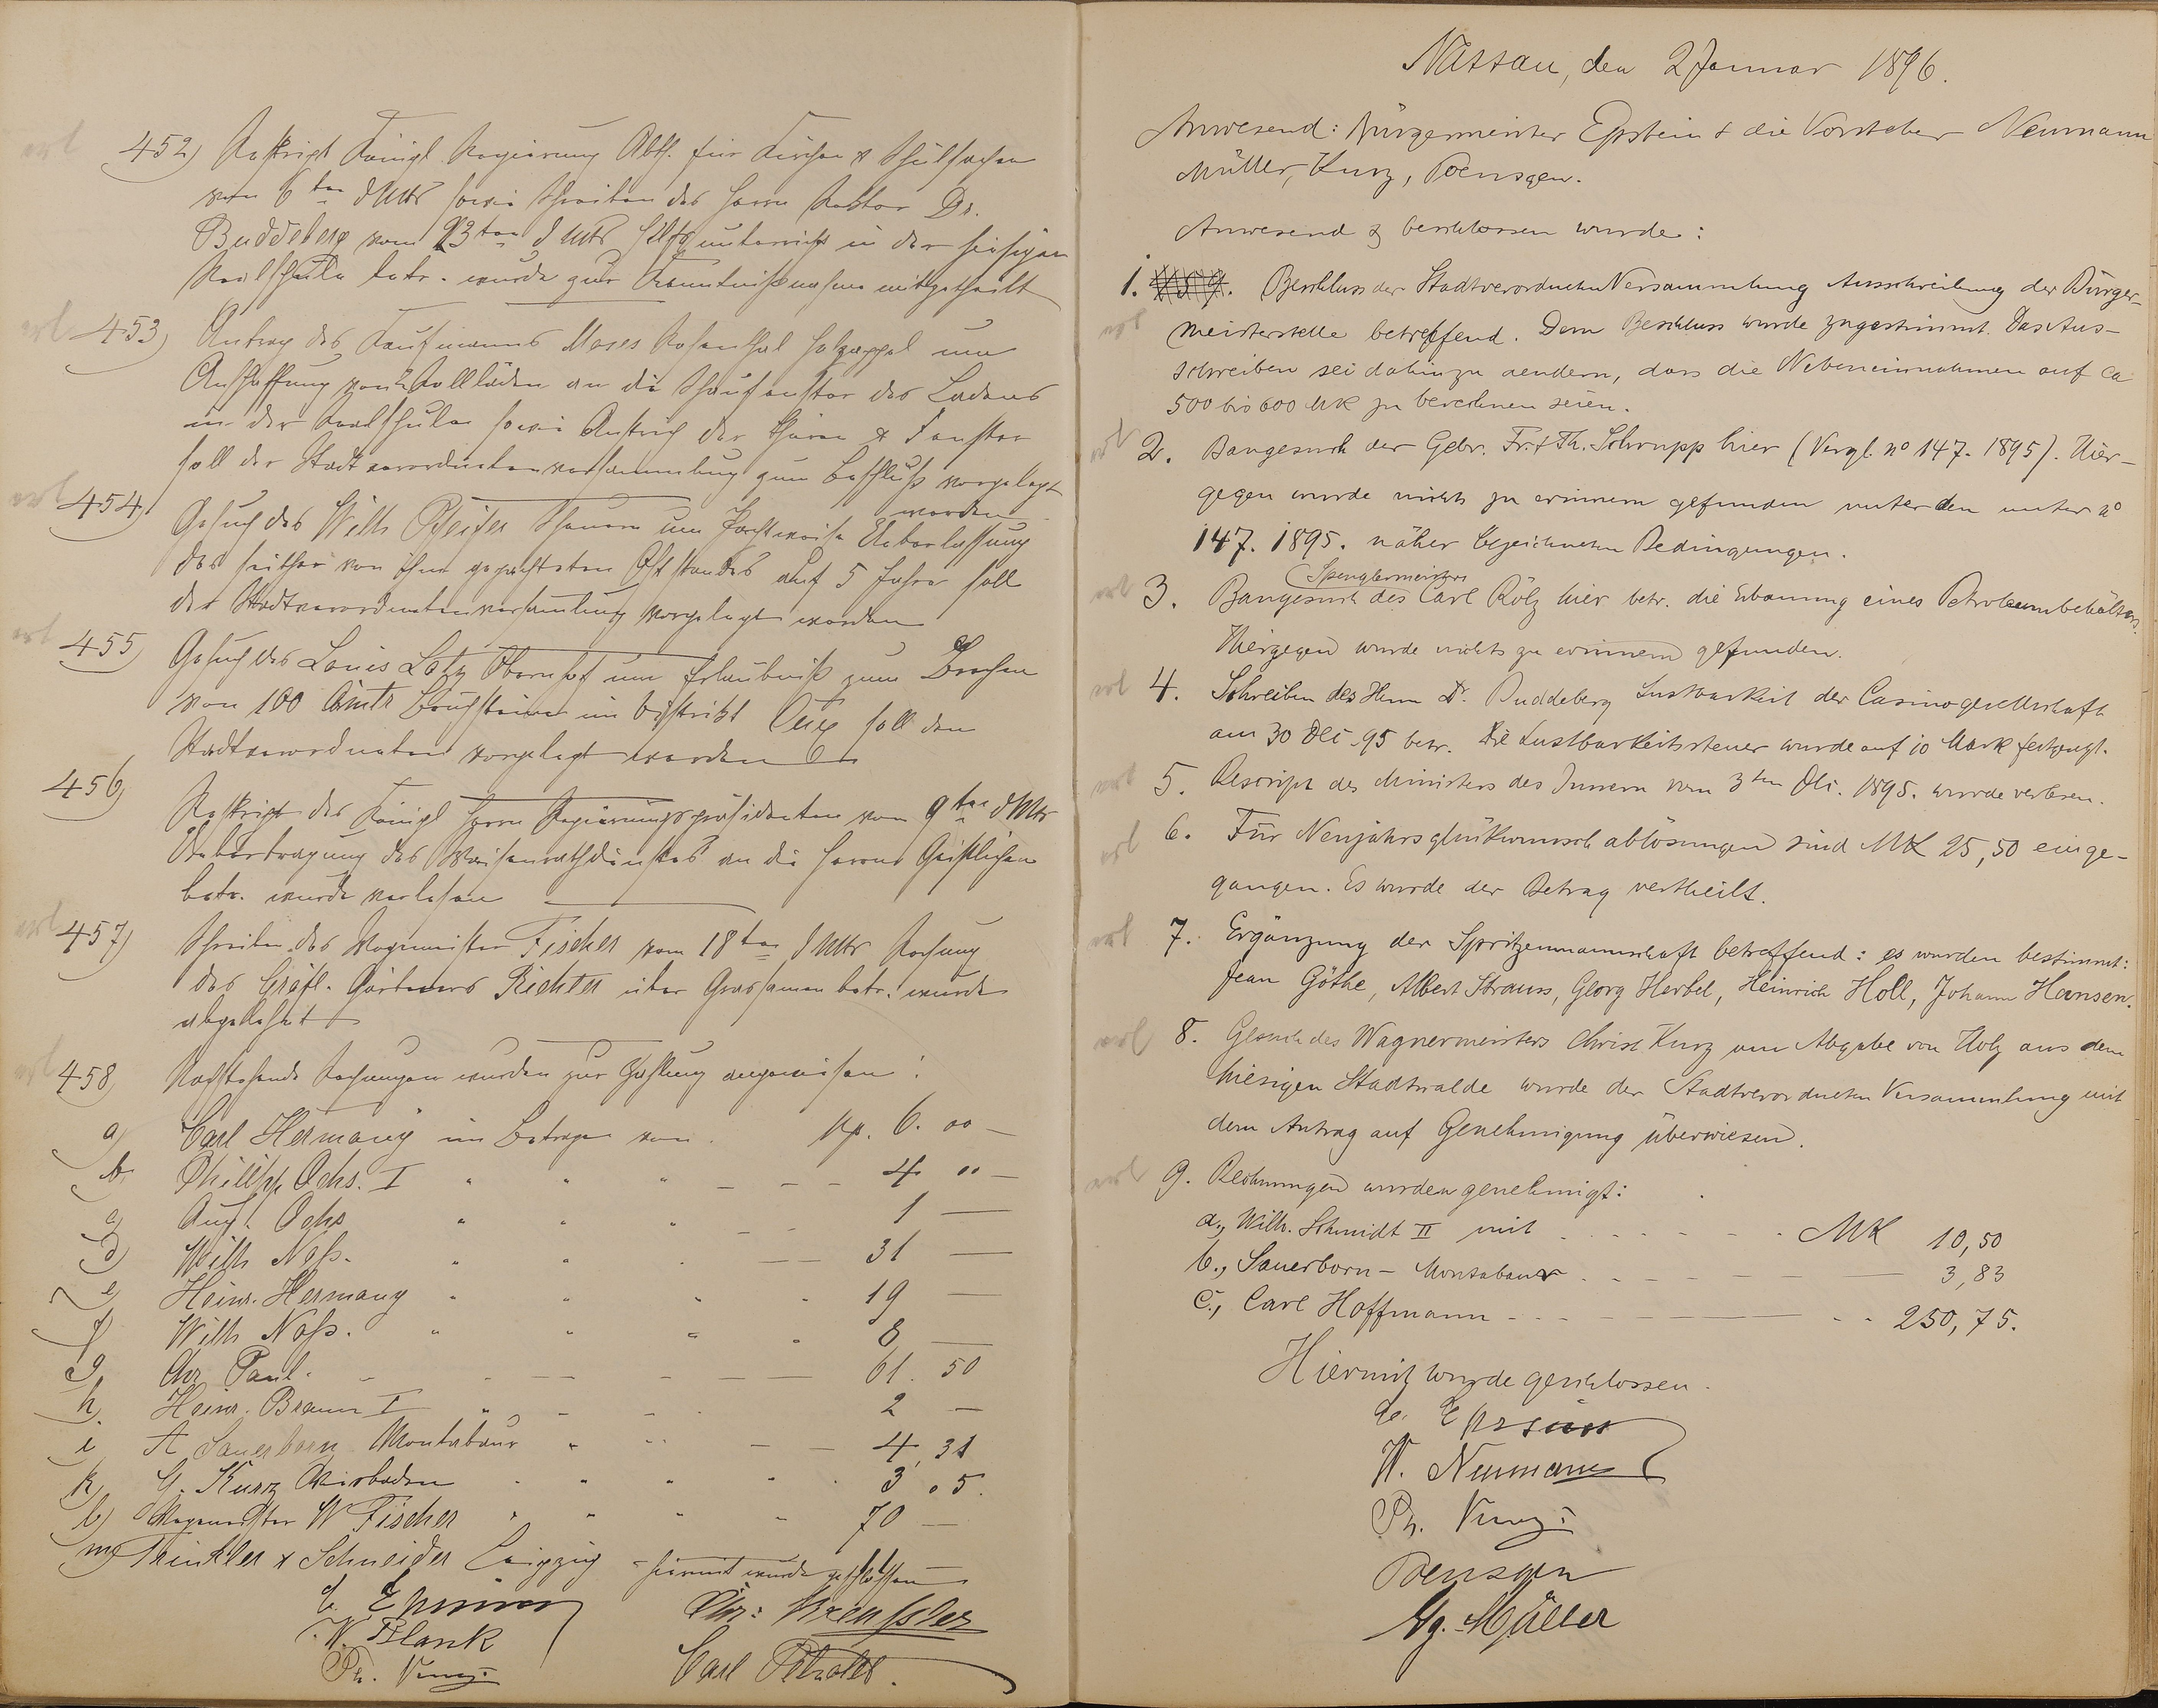 452) Reskript Königl Regierung Abth. für Kirchen & Schulsachen
vom 6ten d Mts sowie Schreiben des Herrn Rektor Dr.
Buddeberg vom 23ten d Mts unterricht in der hiesigen
Realschule betr. wurde zur Kenntnißnahme mitgetheilt
453) Antrag des Kaufmanns Moses Rosenthal Holzappel um
Anschaffung von 2 Rollläden an die Schaufenster des Ladens
in der Realschule sowie Anstrich der Thüren & Fenster
soll der Stadtverordnetenversammlung zum Beschluß vorgelegt
werden
454) Gesuch des Wilh Pfeifer Scheuern um Pachtweise Ueberlassung
des seither von ihm gepachteten standes auf 5 Jahre soll
der Stadtverordnetenversamlung vorgelegt werden
455) Gesuch des Louis Lotz Obernhof um Erlaubniß zum Brechen
von 100 Cbmtr Bruchsteine im Distrikt soll den
Stadtverordneten vorgelegt werden
456) Reskript des Königl Herrn Regierungspräsidenten vom 9ten d Mts
Uebertragung des Waisenrathdienstes an die Herren Geistlichen
betr. wurde verlesen
457) Schreiben des Wegemeister Fischer vom 18ten d Mts Rechnung
des Gräfl. Gärtners Richter über Grassamen betr. wurde
abgelehnt
458) Nachstehende Rechnungen wurden zur Zahlung angewiesen:
a) Carl Hermany im Betrage von . Mk. 6. 00 —
b. Philipp Ochs. I " " " — — — 4 00 —
c) Aug. Ochs " " " — — 1 —
d) Wilh Noß. " " . — — 31 —
e) Heinr. Hermany " " " " 19 —
f) Wilh Noß. " " " . 8 —
g. Chr Paul. — — — — — — 61. 50
h. Heinr. Braun I " — — . 2 —
i) A Sauerborn Montabaur " " — — 4,31
k) G. Kurz Wiesbaden . " " " . 3 05.
l) Wegemeister W Fischer " " " " 70 —
m) Trinkler & Schneider Leipzig - hiermit wurde geschlossen
C. Epstein Chr:
W. Blank
Ph. Kurz Carl
Nassau, den 2 Januar 1896.
Anwesend: Bürgermeister Epstein & die Vorsteher Neumann
Müller, Kurz, Poensgen.
Anwesend & beschlossen wurde:
1. Beschluss der Stadtverordneten Versammlung Ausschreibung der Bürger-
meisterstelle betreffend. Dem Beschluss wurde zugestimmt. Das Aus-
schreiben sei dahin zu aendern, dass die Nebeneinnahmen auf ca
500 bis 600 Mk zu berechnen seien.
2. Baugesuch der Gebr. Fr. & Th. Schrupp hier (Vergl. no 147. 1895). Hier-
gegen wurde nichts zu erinnern gefunden unter den unter no
147. 1895. näher bezeichneten Bedingungen.
Spenglermeisters
3. Baugesuch des Carl Rölz hier betr. die Erbauung eines Petroleumbehälters.
Hiergegen wurde nichts zu erinnern gefunden.
4. Schreiben des Herrn Dr. Buddeberg Lustbarkeit der Casinogesellschaft
am 30 Dec. 95 betr. Die Lustbarkeitssteuer wurde auf 10 Mark festgesgt.
5. Rescript des Ministers des Innern vom 3ten Dec. 1895. wurde verlesen.
6. Für Neujahrsglükwunschablösungen sind MK 25,50 einge-
gangen. Es wurde der Betrag vertheilt.
7. Ergänzung der Spritzenmannschaft betreffend: es wurden bestimmt:
Jean Göthe, Albert Strauss, Georg Herbel, Heinrich Holl, Johann Hansen.
8. Gesuch des Wagnermeisters Christ Kurz um Abgabe von Holz aus dem
hiesigen Stadtwalde wurde der Stadtverordneten Versammlung mit
dem Antrag auf Genehmigung überwiesen.
9. Rechnungen wurden genehmigt:
a., Wilh. Schmidt II mit . . . . . . . MK 10,50
b., Sauerborn - Montabaur . . - - - — 3,83
c., Carl Hoffmann - - - - - — - - 250,75.
Hiermit wurde geschlossen.
C. Epstein
W. Neumann
Ph. Kurz
Poensgen
Gg. Müller